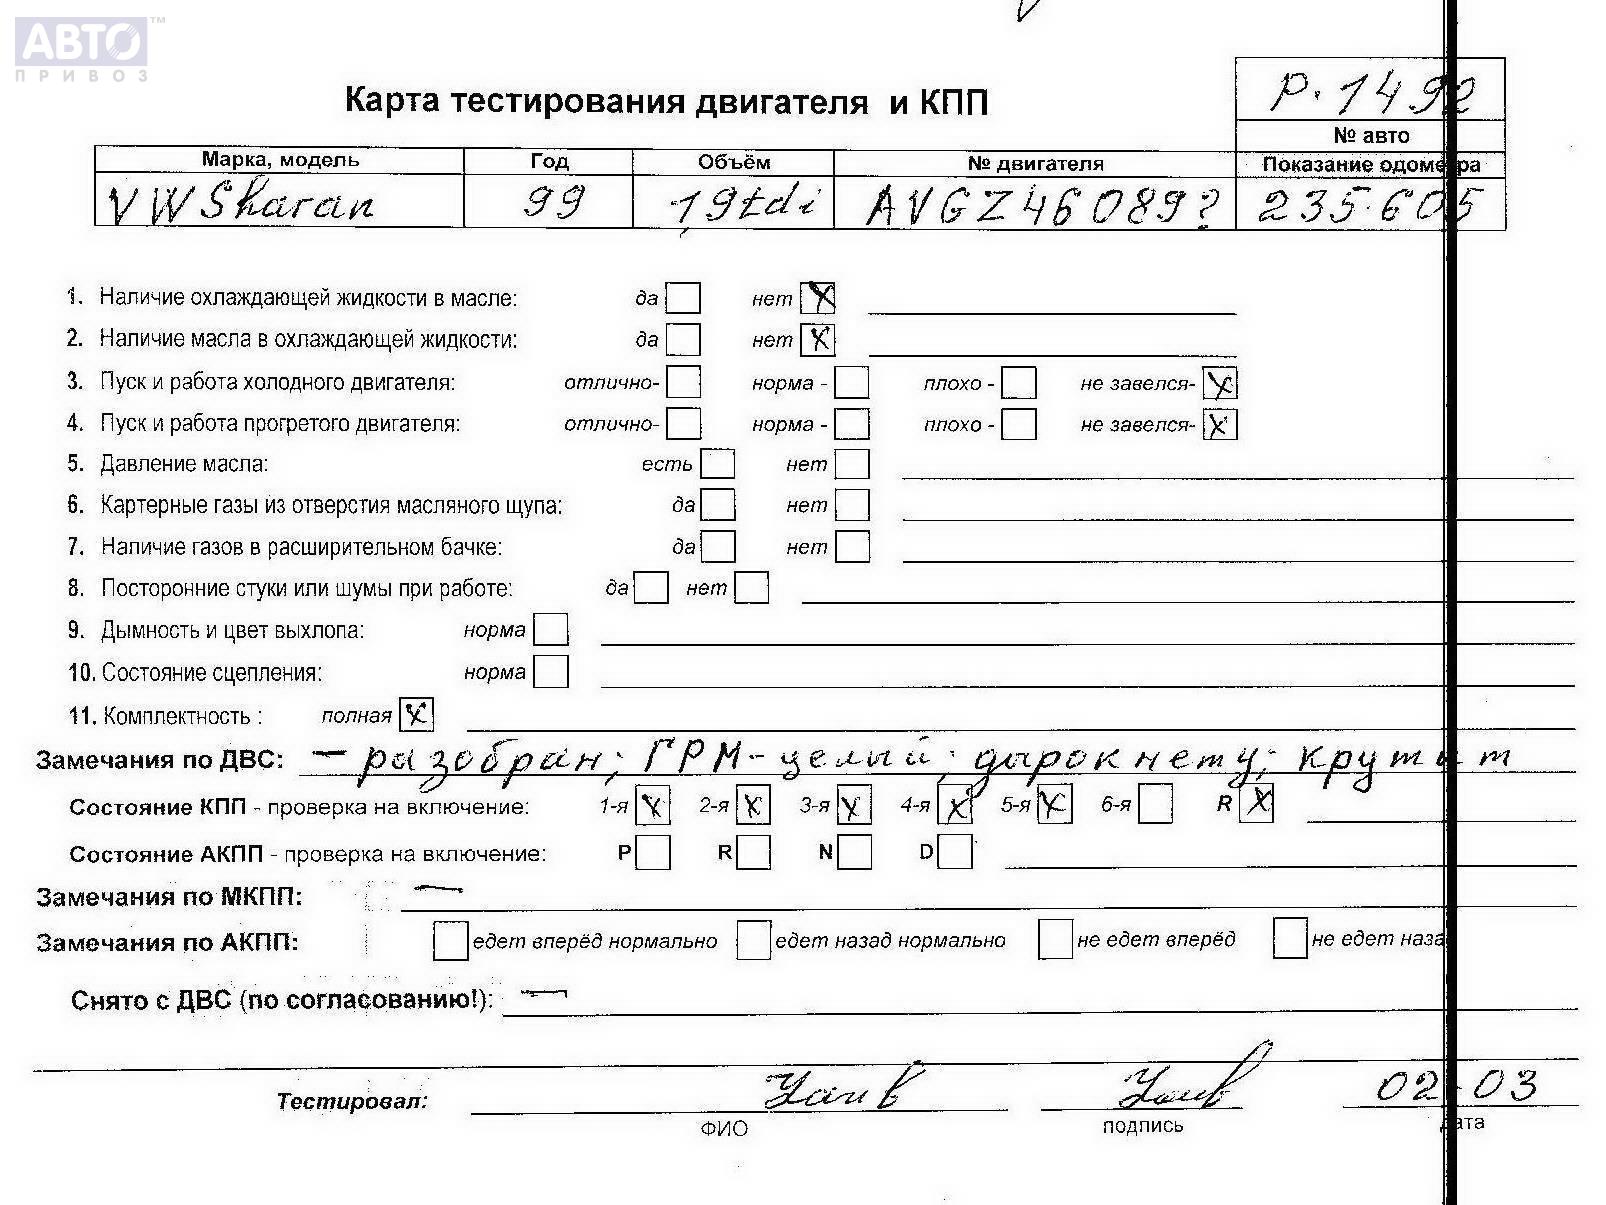 АВТО™
ПРИВОЗ
Р.1492
Карта тестирования двигателя и КПП
№ авто
Марка, модель Год Объём № двигателя Показание одометра
VW Sharan 99 1,9tdi AVG Z46089? 235.605
1. Наличие охлаждающей жидкости в масле: да нет X
2. Наличие масла в охлаждающей жидкости: да нет X
3. Пуск и работа холодного двигателя: отлично- норма - плохо - не завелся- X
4. Пуск и работа прогретого двигателя: отлично- норма - плохо - не завелся- X
5. Давление масла: есть нет
6. Картерные газы из отверстия масляного щупа: да нет
7. Наличие газов в расширительном бачке: да нет
8. Посторонние стуки или шумы при работе: да нет
9. Дымность и цвет выхлопа: норма
10. Состояние сцепления: норма
11. Комплектность : полная X
Замечания по ДВС: – разобран; ГРМ-целый; дырок нету; крутит
Состояние КПП - проверка на включение: 1-я X 2-я X 3-я X 4-я X 5-я X 6-я R X
Состояние АКПП - проверка на включение: P R N D
Замечания по МКПП: —
Замечания по АКПП: едет вперёд нормально едет назад нормально не едет вперёд не едет наза
Снято с ДВС (по согласованию!): —
Тестировал: 02-03
ФИО подпись дата